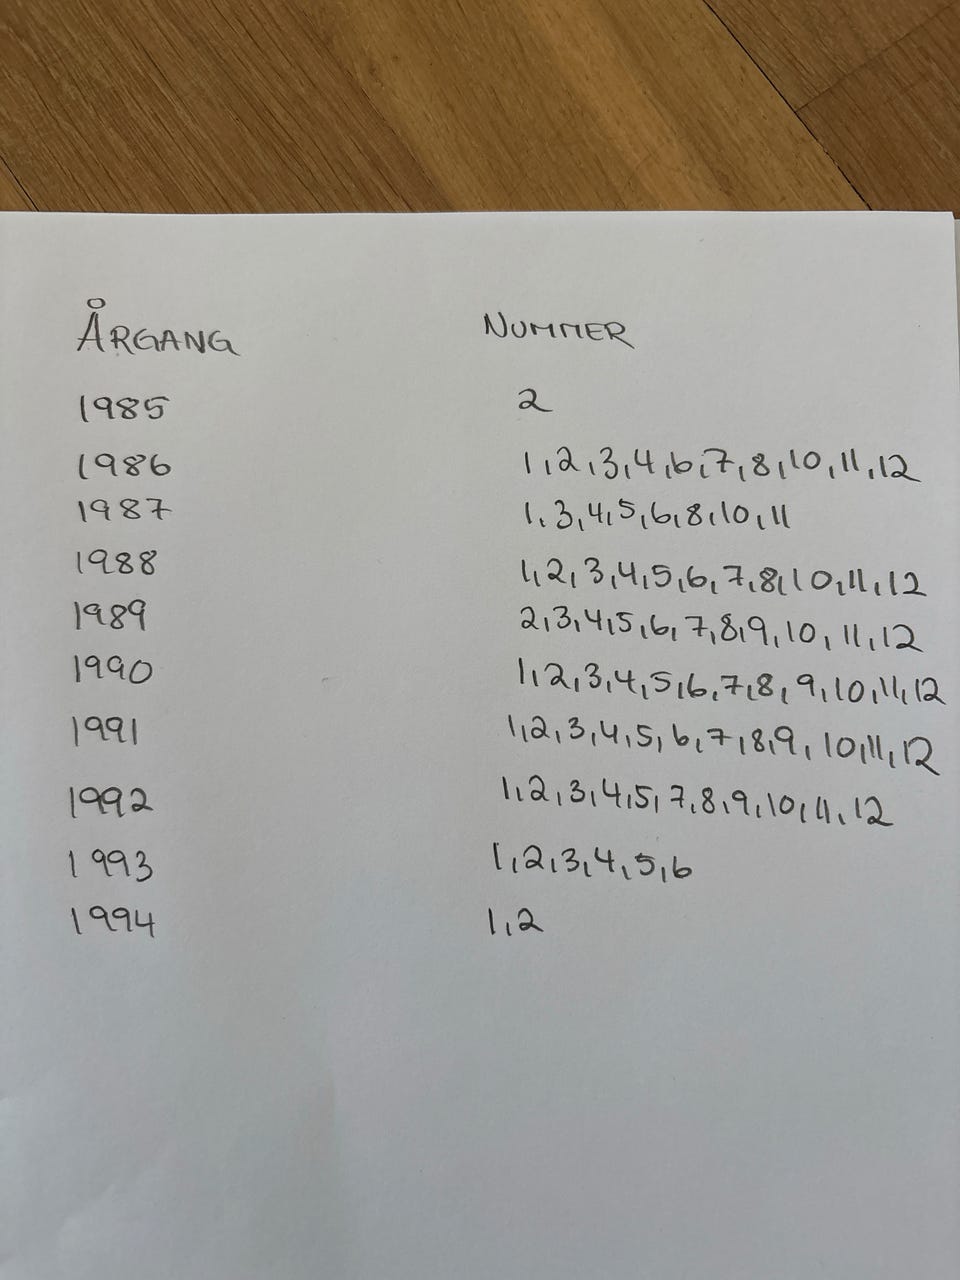 ÅRGANG NUMMER
1985 2
1986 1,2,3,4,6,7,8,10,11,12
1987 1,3,4,5,6,8,10,11
1988 1,2,3,4,5,6,7,8,10,11,12
1989 2,3,4,5,6,7,8,9,10,11,12
1990 1,2,3,4,5,6,7,8,9,10,11,12
1991 1,2,3,4,5,6,7,8,9,10,11,12
1992 1,2,3,4,5,7,8,9,10,11,12
1993 1,2,3,4,5,6
1994 1,2